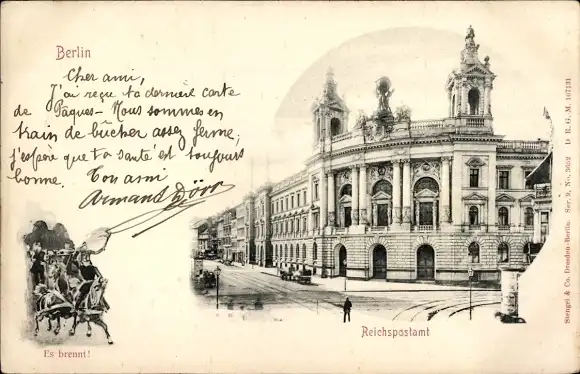 Berlin
Cher ami,
J'ai reçu ta derniell carte
de Pâques - Nous sommes en
train de bûcher assez ferme,
j'espère que ta santé est toujours
bonne. Ton ami
Armand Dörr
Es brennt!
Reichspostamt
Stengel & Co. Dresden-Berlin. Ser. 9. No. 3052 D. R. G. M. 107131